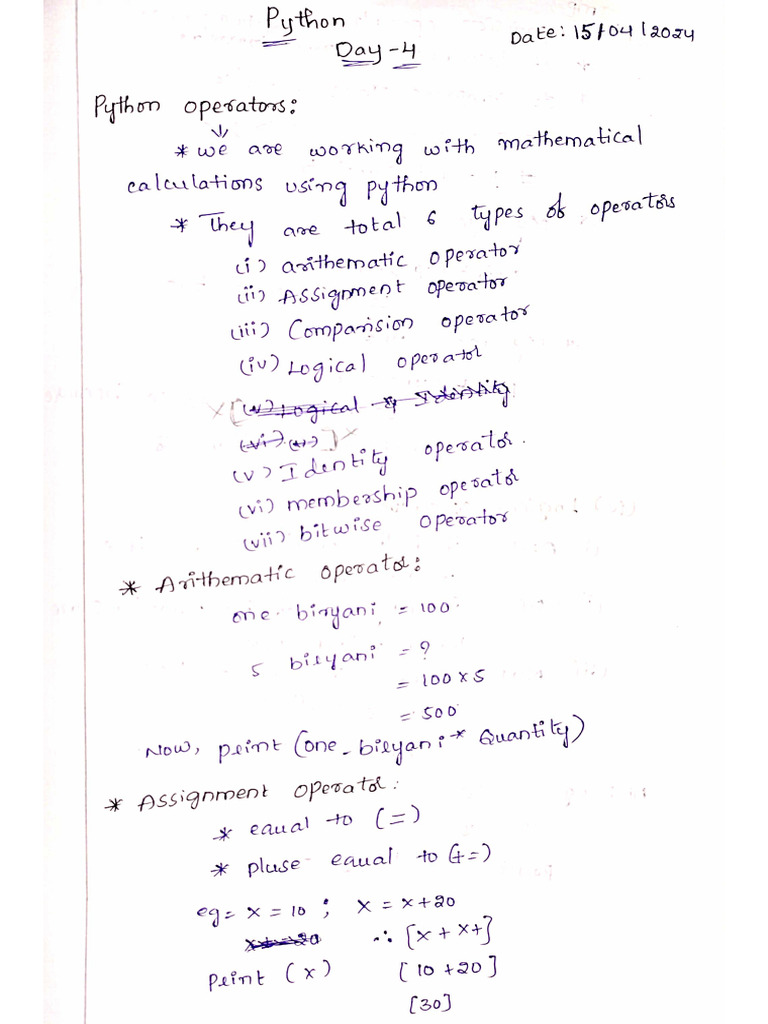 Python
Day-4
Date: 15/04/2024
Python operators:
* we are working with mathematical
calculations using python
* They are total 6 types of operators
(i) arithematic operator
(ii) Assignment operator
(iii) Comparision operator
(iv) Logical operator
(v) Logical & Identity
(vi)
(v) Identity operator.
(vi) membership operator
(vii) bitwise operator
* Arithematic operator:
one biryani = 100
5 biryani = ?
= 100 x 5
= 500
Now, print (one_biryani * Quantity)
* Assignment operator:
* equal to (=)
* pluse equal to (+=)
eg= x = 10 ; x = x+20
∴ [x + x+]
print (x) [10 +20]
[30]